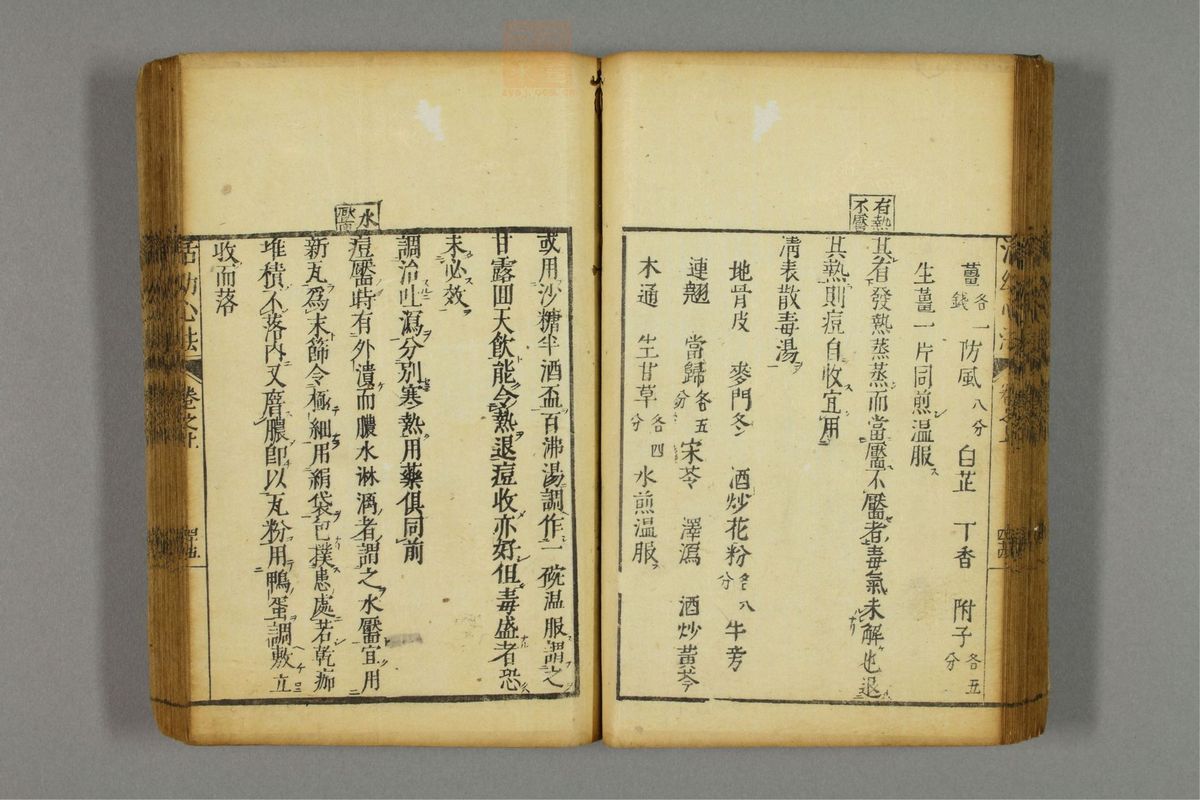 薑各一錢防風八分白芷丁香附子各五分
生薑一片同煎温服
有熱不靨
其有發熱蒸蒸而當靨不靨者毒氣未解也退
其熱則痘自收宜用
清表散毒湯
地骨皮麥門冬酒炒花粉各八分牛旁
連翹當歸各五分宋苓澤瀉酒炒黃芩
木通生甘草各四分水煎温服
或用沙糖半酒盃百沸湯調作一碗温服謂之
甘露回天飲能令熱退痘收亦好但毒盛者恐
未必效
調治吐瀉分別寒熱用藥俱同前
水靨
痘靨時有外潰而膿水淋漓者謂之水靨宜用
新瓦爲末篩令極細用絹袋包撲患處若乾痂
堆積不落內又膺膿卽以瓦粉用鴨蛋調敷立
收而落
活幼心法
卷之